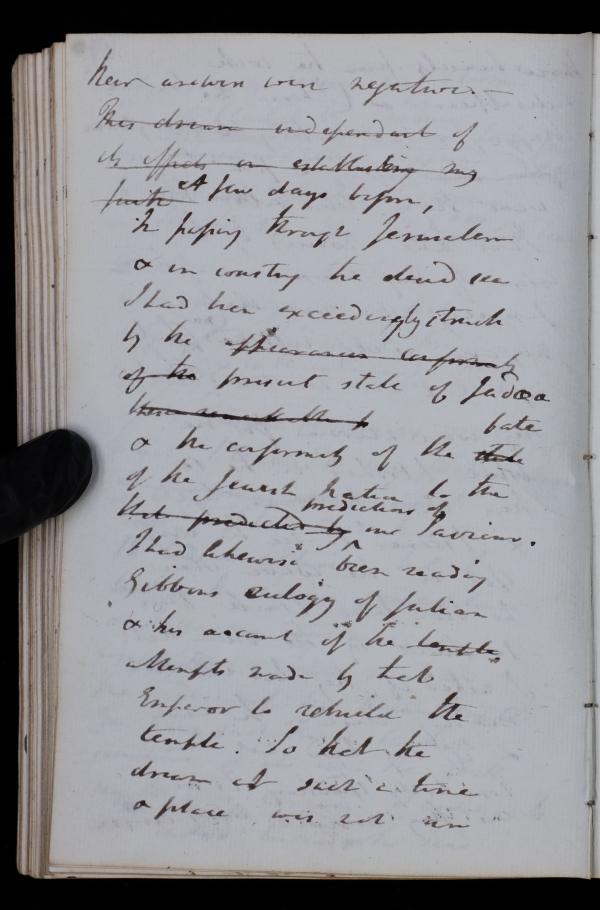 their answers were negative. —
This dream independant of
its effects in establishing my
faith A few days before,
In passing through Jerusalem
& in coasting the dead sea
I had been exceedingly struck
by the appearances conformity
of the present state of Judaea
fate
& the conformity of the state
of the Jewish Nation to the
predictions of
that predicted by our Saviour.
I had likewise been reading
Gibbons eulogy of Julian
& his account of the temple
attempts made by that
Emperor to rebuild the
temple. So that the
dream at such a time
& place was not un